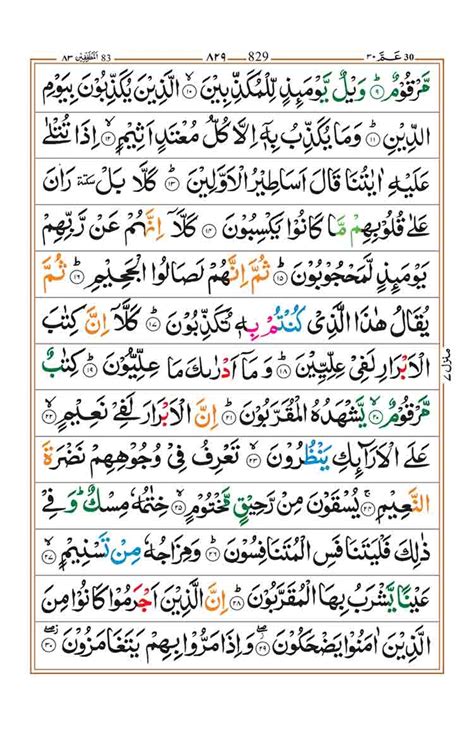 المطففين ٨٣ 83 ٨٢٩ 829 عم ٣٠ 30
مَّرْقُوْمٌ ؕ‏ ۙ‏ ٩ وَيْلٌ يَّوْمَئِذٍ لِّلْمُكَذِّبِيْنَ ۙ ١٠ الَّذِيْنَ يُكَذِّبُوْنَ بِيَوْمِ
الدِّيْنِ ؕ ١١ وَمَا يُكَذِّبُ بِهٖۤ اِلَّا كُلُّ مُعْتَدٍ اَثِيْمٍ ۙ ١٢ اِذَا تُتْلٰى
عَلَيْهِ اٰيٰتُنَا قَالَ اَسَاطِيْرُ الْاَوَّلِيْنَ ؕ ١٣ كَلَّا بَلْ سكتة رَانَ
عَلٰى قُلُوْبِهِمْ مَّا كَانُوْا يَكْسِبُوْنَ ١٤ كَلَّاۤ اِنَّهُمْ عَنْ رَّبِّهِمْ
يَوْمَئِذٍ لَّمَحْجُوْبُوْنَ ؕ ١٥ ثُمَّ اِنَّهُمْ لَصَالُوا الْجَحِيْمِ ؕ ١٦ ثُمَّ
يُقَالُ هٰذَا الَّذِيْ كُنْتُمْ بِهٖ تُكَذِّبُوْنَ ؕ ١٧ كَلَّاۤ اِنَّ كِتٰبَ
الْاَبْرَارِ لَفِيْ عِلِّيِّيْنَ ؕ ١٨ وَمَاۤ اَدْرٰىكَ مَا عِلِّيُّوْنَ ؕ ١٩ كِتٰبٌ
مَّرْقُوْمٌ ۙ ٢٠ يَّشْهَدُهُ الْمُقَرَّبُوْنَ ؕ ٢١ اِنَّ الْاَبْرَارَ لَفِيْ نَعِيْمٍ ۙ ٢٢
عَلَى الْاَرَآئِكِ يَنْظُرُوْنَ ۙ ٢٣ تَعْرِفُ فِيْ وُجُوْهِهِمْ نَضْرَةَ
النَّعِيْمِ ۚ ٢٤ يُسْقَوْنَ مِنْ رَّحِيْقٍ مَّخْتُوْمٍ ۙ ٢٥ خِتٰمُهٗ مِسْكٌ ؕ وَفِيْ
ذٰلِكَ فَلْيَتَنَافَسِ الْمُتَنَافِسُوْنَ ؕ ٢٦ وَمِزَاجُهٗ مِنْ تَسْنِيْمٍ ۙ ٢٧
عَيْنًا يَّشْرَبُ بِهَا الْمُقَرَّبُوْنَ ؕ ٢٨ اِنَّ الَّذِيْنَ اَجْرَمُوْا كَانُوْا مِنَ
الَّذِيْنَ اٰمَنُوْا يَضْحَكُوْنَ ۖ ٢٩ وَاِذَا مَرُّوْا بِهِمْ يَتَغَامَزُوْنَ ۖ ٣٠
منزل ٧